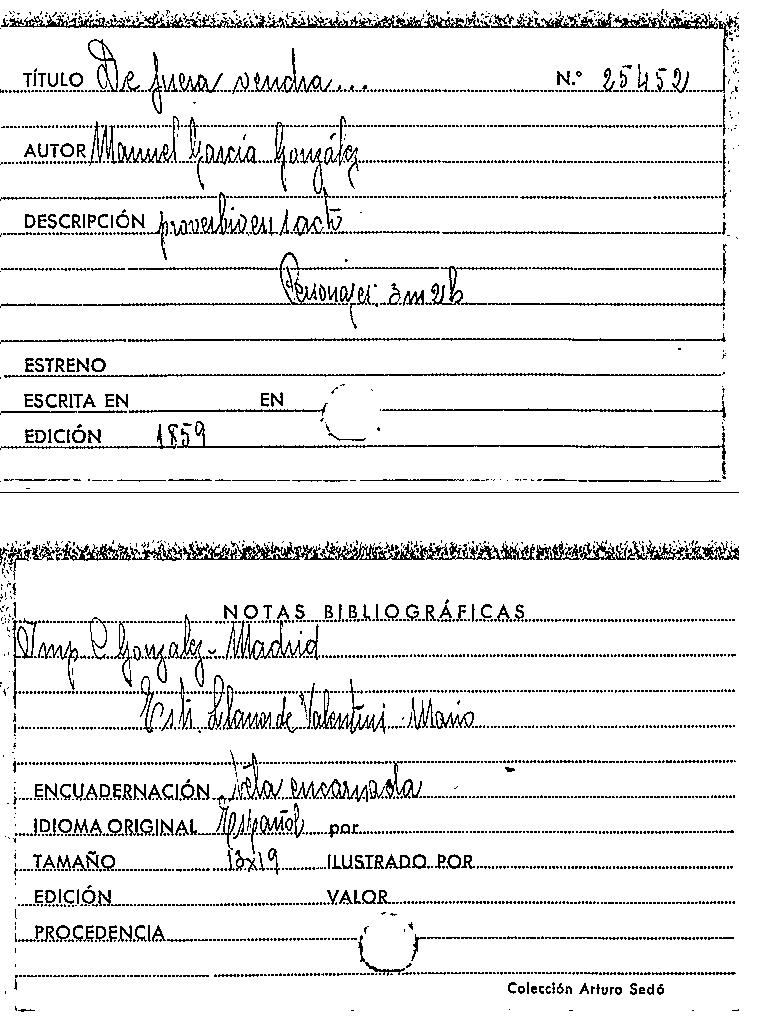 TÍTULO De fuera vendra... N.º 25452
AUTOR Manuel García González
DESCRIPCIÓN proverbio en 1 acto
Personajes: 3m 2h
ESTRENO
ESCRITA EN EN
EDICIÓN 1859
NOTAS BIBLIOGRÁFICAS
Imp C González - Madrid
de Valentini - Mario
ENCUADERNACIÓN tela encarnada
IDIOMA ORIGINAL Español por
TAMAÑO 13x19 ILUSTRADO POR
EDICIÓN VALOR
PROCEDENCIA
Colección Arturo Sedó